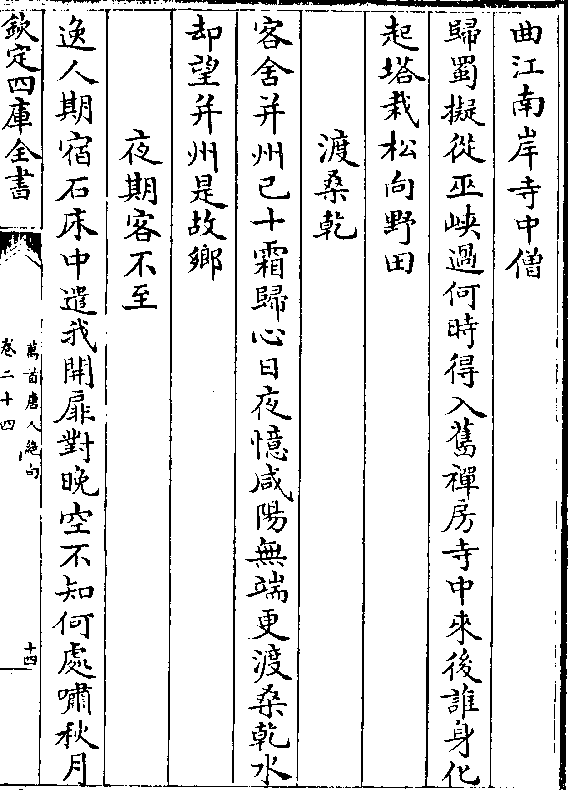 曲江南岸寺中僧
歸蜀擬從巫峽過何時得入舊禪房寺中來後誰身化
起塔栽松向野田
渡桑乾
客舍并州已十霜歸心日夜憶咸陽無端更渡桑乾水
却望并州是故鄉
夜期客不至
逸人期宿石床中遣我開扉對晚空不知何處嘯秋月
欽定四庫全書
萬首唐人絶句
卷二十四
十四